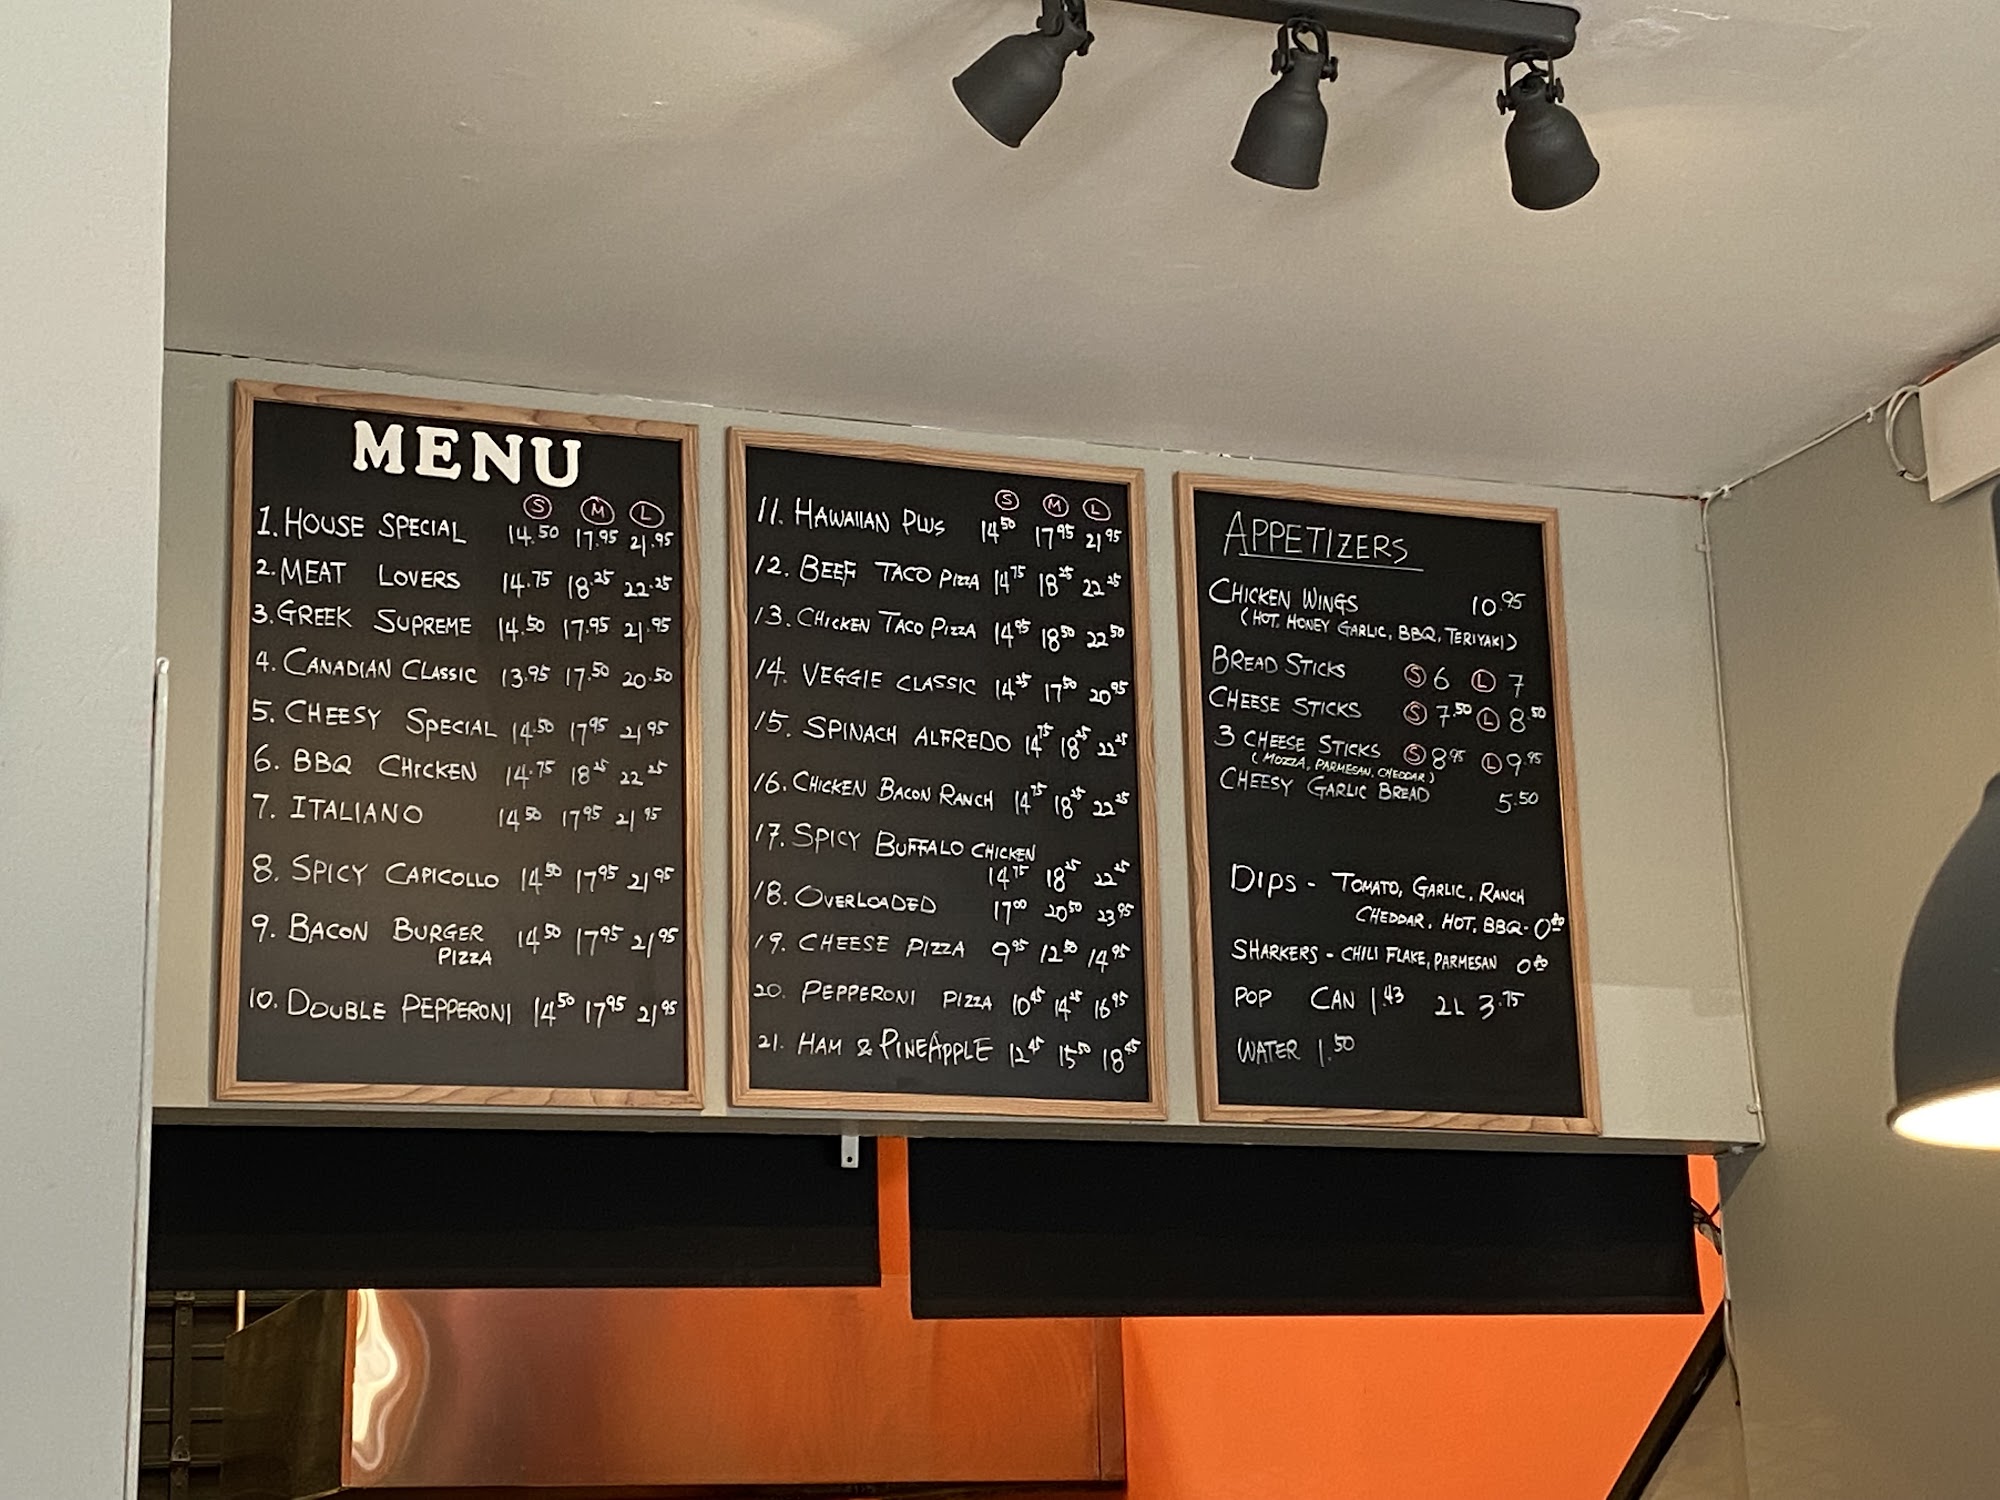 MENU
S M L
1. HOUSE SPECIAL 14.50 17.95 21.95
2. MEAT LOVERS 14.75 18.25 22.25
3. GREEK SUPREME 14.50 17.95 21.95
4. CANADIAN CLASSIC 13.95 17.50 20.50
5. CHEESY SPECIAL 14.50 17.95 21.95
6. BBQ CHICKEN 14.75 18.25 22.25
7. ITALIANO 14.50 17.95 21.95
8. SPICY CAPICOLLO 14.50 17.95 21.95
9. BACON BURGER 14.50 17.95 21.95
PIZZA
10. DOUBLE PEPPERONI 14.50 17.95 21.95
S M L
11. HAWAIIAN PLUS 14.50 17.95 21.95
12. BEEF TACO PIZZA 14.75 18.25 22.25
13. CHICKEN TACO PIZZA 14.95 18.50 22.50
14. VEGGIE CLASSIC 14.25 17.50 20.95
15. SPINACH ALFREDO 14.75 18.25 22.25
16. CHICKEN BACON RANCH 14.75 18.25 22.25
17. SPICY BUFFALO CHICKEN
14.75 18.25 22.25
18. OVERLOADED 17.00 20.50 23.95
19. CHEESE PIZZA 9.95 12.50 14.95
20. PEPPERONI PIZZA 10.45 14.25 16.95
21. HAM & PINEAPPLE 12.45 15.50 18.45
APPETIZERS
CHICKEN WINGS 10.95
(HOT, HONEY GARLIC, BBQ, TERIYAKI)
BREAD STICKS S 6 L 7
CHEESE STICKS S 7.50 L 8.50
3 CHEESE STICKS S 8.95 L 9.95
(MOZZA, PARMESAN, CHEDDAR)
CHEESY GARLIC BREAD 5.50
DIPS - TOMATO, GARLIC, RANCH
CHEDDAR, HOT, BBQ - 0.80
SHARKERS - CHILI FLAKE, PARMESAN 0.80
POP CAN 1.43 2L 3.75
WATER 1.50